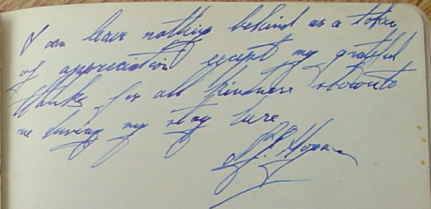 I can leave nothing behind as a token
of appreciation except my grateful
thanks for all kindness shown to
me during my stay here